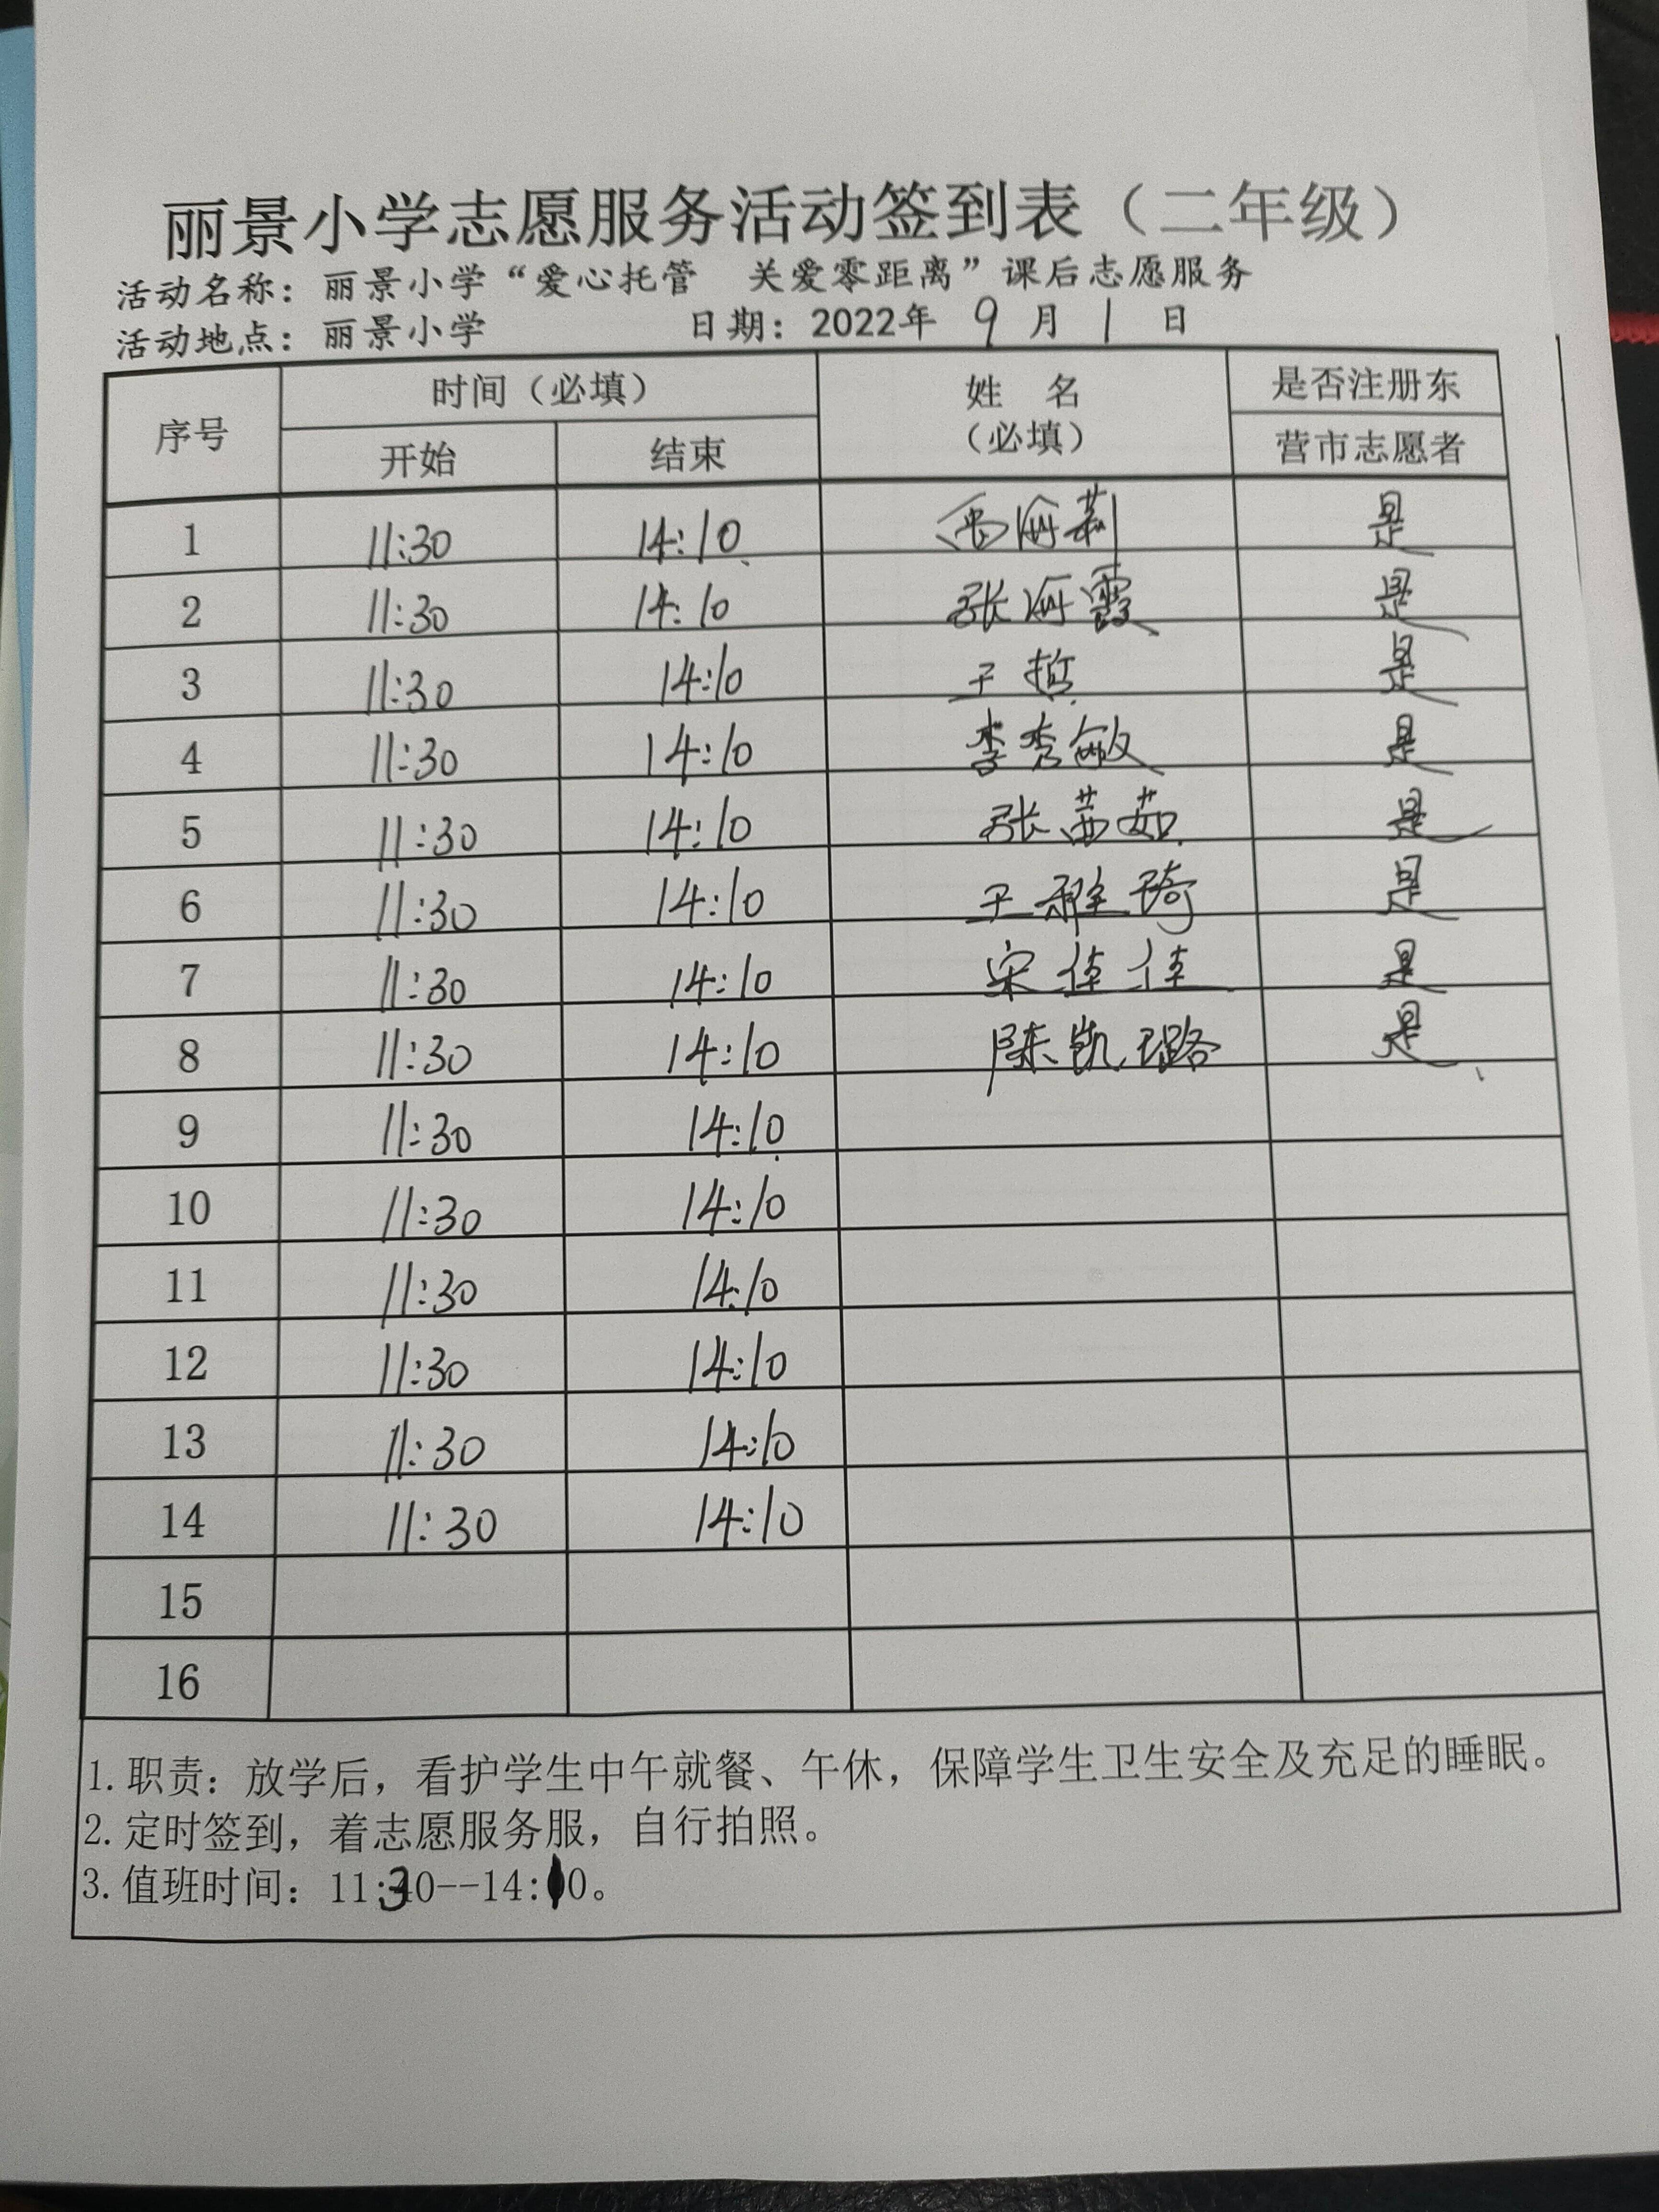 丽景小学志愿服务活动签到表（二年级）
活动名称：丽景小学“爱心托管 关爱零距离”课后志愿服务
活动地点：丽景小学 日期：2022年 9 月 1 日
序号 时间（必填） 姓 名 是否注册东
开始 结束 （必填） 营市志愿者
1 11:30 14:10 是
2 11:30 14:10 张丽霞 是
3 11:30 14:10 于哲 是
4 11:30 14:10 李秀敏 是
5 11:30 14:10 张茜茹 是
6 11:30 14:10 王雅琦 是
7 11:30 14:10 宋佳佳 是
8 11:30 14:10 陈凯璐 是
9 11:30 14:10
10 11:30 14:10
11 11:30 14:10
12 11:30 14:10
13 11:30 14:10
14 11:30 14:10
15
16
1.职责：放学后，看护学生中午就餐、午休，保障学生卫生安全及充足的睡眠。
2.定时签到，着志愿服务服，自行拍照。
3.值班时间：11:30--14:10。